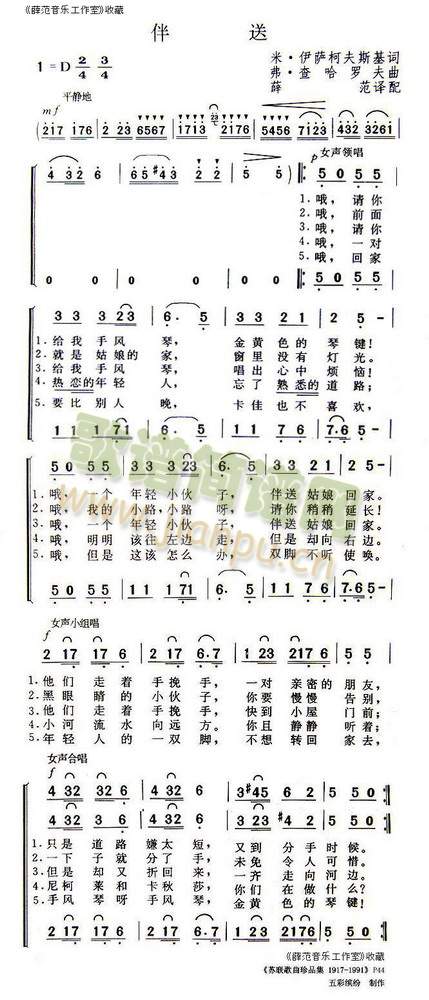 《薛范音乐工作室》收藏
伴 送
1=D 2/4 3/4
米·伊萨柯夫斯基词
弗·查哈罗夫曲
薛 范译配
平静地
mf
217 176 2 23 6567 1713 23 2176 5456 7123 432 3261
女声领唱
p
4 32 23 65 #43 2 2 5 5 5 0 5 5
1.哦，请你
2.哦，前面
3.哦，请你
4.哦，一对
5.哦，回家
0 0 0 0 0 0 5 0 5 5
3 3 3 23 6· 5 3 3 2 1 2 5 -
1.给我 手风 琴， 金黄 色的 琴键！
2.就是 姑娘的 家， 窗里 没有 灯光。
3.给我 手风 琴， 唱出 心中 烦恼！
4.热恋的年轻 人， 忘了 熟悉的 道路；
5.要比 别人 晚， 卡佳 也不 喜欢，
1 1 1 71 6· 5 1 1 7 6 7·6 5 -
5 0 5 5 3 3 3 23 6· 5 3 3 2 1 2 5 -
1.哦，一个 年轻 小伙 子， 伴送 姑娘 回家。
2.哦，我的 小路，小路 呀， 请你 稍稍 延长！
3.哦，一个 年轻 小伙 子， 伴送 姑娘 回家。
4.哦，明明 该往 左边 走， 但是 却向 右边。
5.哦，但是 这该 怎么 办， 双脚 不听 使唤。
5 0 5 5 1 1 1 71 6· 5 1 1 7 6 7·6 5 -
女声小组唱
f
2 17 17 6 2 17 6·7 1 23 2176 5 5
1.他们 走着 手挽 手， 一对 亲密的 朋友，
2.黑眼 睛的 小伙 子， 你要 慢慢 告别，
3.他们 走着 手挽 手， 快到 小屋 门前；
4.小河 流水 向远 方。 你且 静静 听着；
5.年轻 人的 一双 脚， 不想 转回 家去，
女声合唱
f
4 32 32 6 4 32 2 3 #45 6 2 5 5
4 32 32 6 4 32 2 3 #43 2 2 5 5
1.只是 道路 嫌太 短， 又到 分手 时候。
2.一下 子就 分了 手， 未免 令人 可惜。
3.但是 却又 折回 来， 一齐 走向 河边。
4.尼柯 莱和 卡秋 莎， 你们 在做 什么？
5.手风 琴呀 手风 琴， 金黄 色的 琴键！
2 17 17 6 2 17 6·7 1 23 2176 5 5
《薛范音乐工作室》收藏
《苏联歌曲珍品集 1917-1991》P44
五彩缤纷 制作
歌谱简谱网
www.jianpu.cn